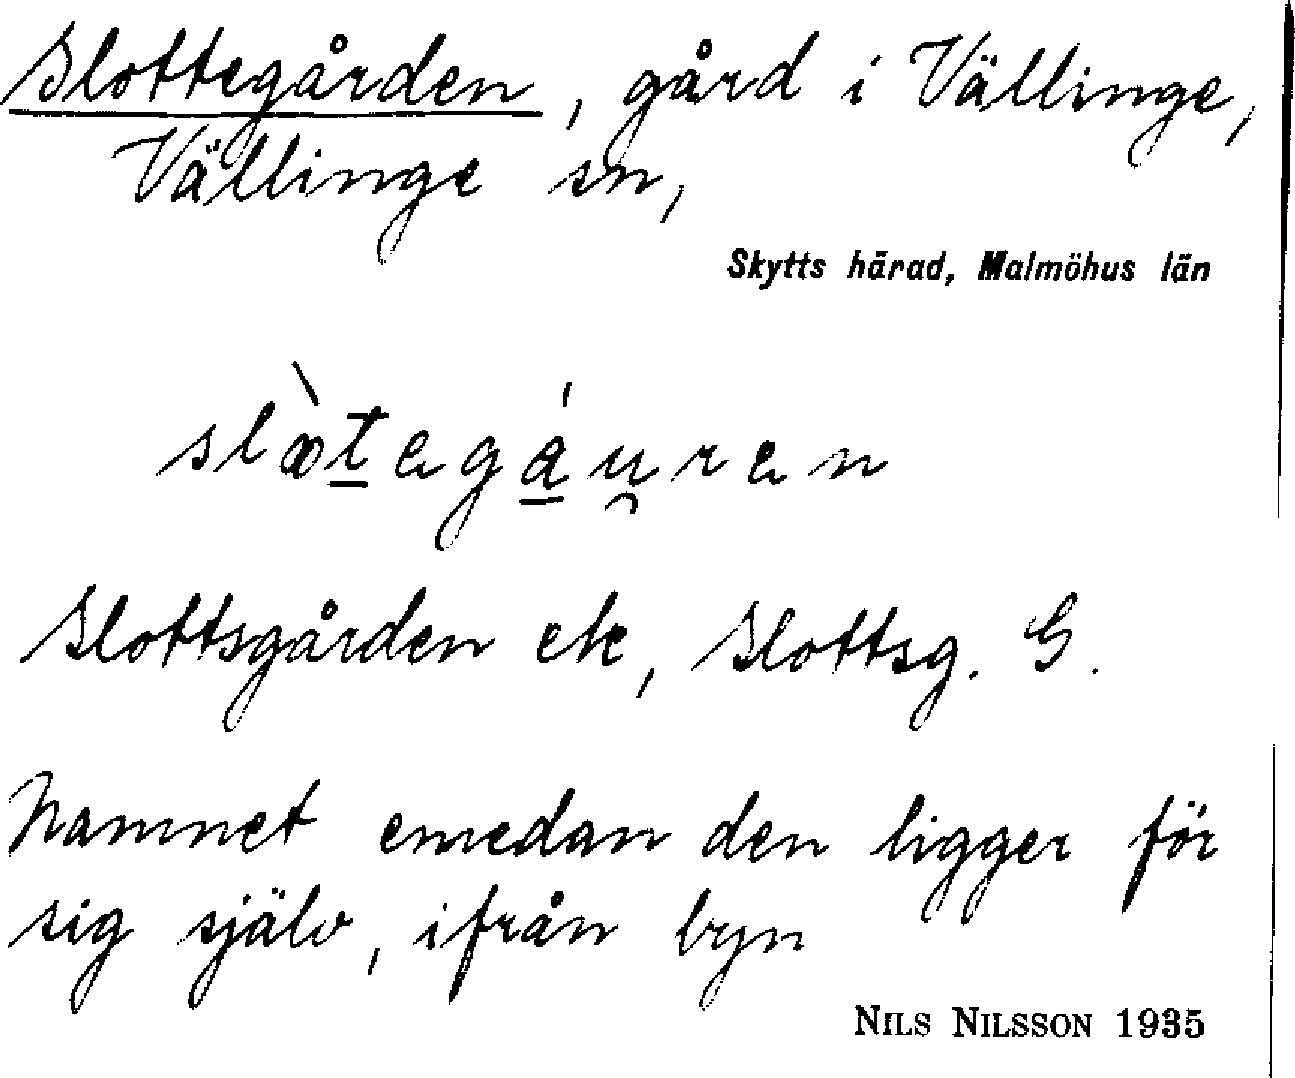 Slottegården, gård i Vällinge,
Vällinge sn,
Skytts härad, Malmöhus län
slòtegáu̯ren
Slottsgården ek, Slottsg. G.
Namnet emedan den ligger för
sig själv, ifrån byn
NILS NILSSON 1935